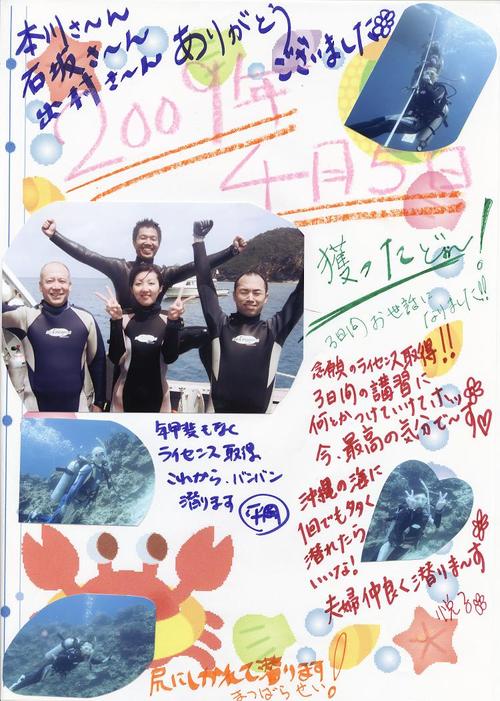 本川さ〜ん
石坂さ〜ん
出村さ〜ん
ありがとう
ございました
2009年
4月5日
獲ったどー!
3日間お世話に
なりました!!
念願のライセンス取得!!
3日間の講習に
何とかつけていけてホッ
今、最高の気分で〜す♡
沖縄の海に
1回でも多く
潜れたら
いいな!
夫婦仲良く潜りま〜す
悦子
年甲斐もなく
ライセンス取得
これから、バンバン
潜ります
平岡
尻にしかれて潜ります!
まつばらせい!